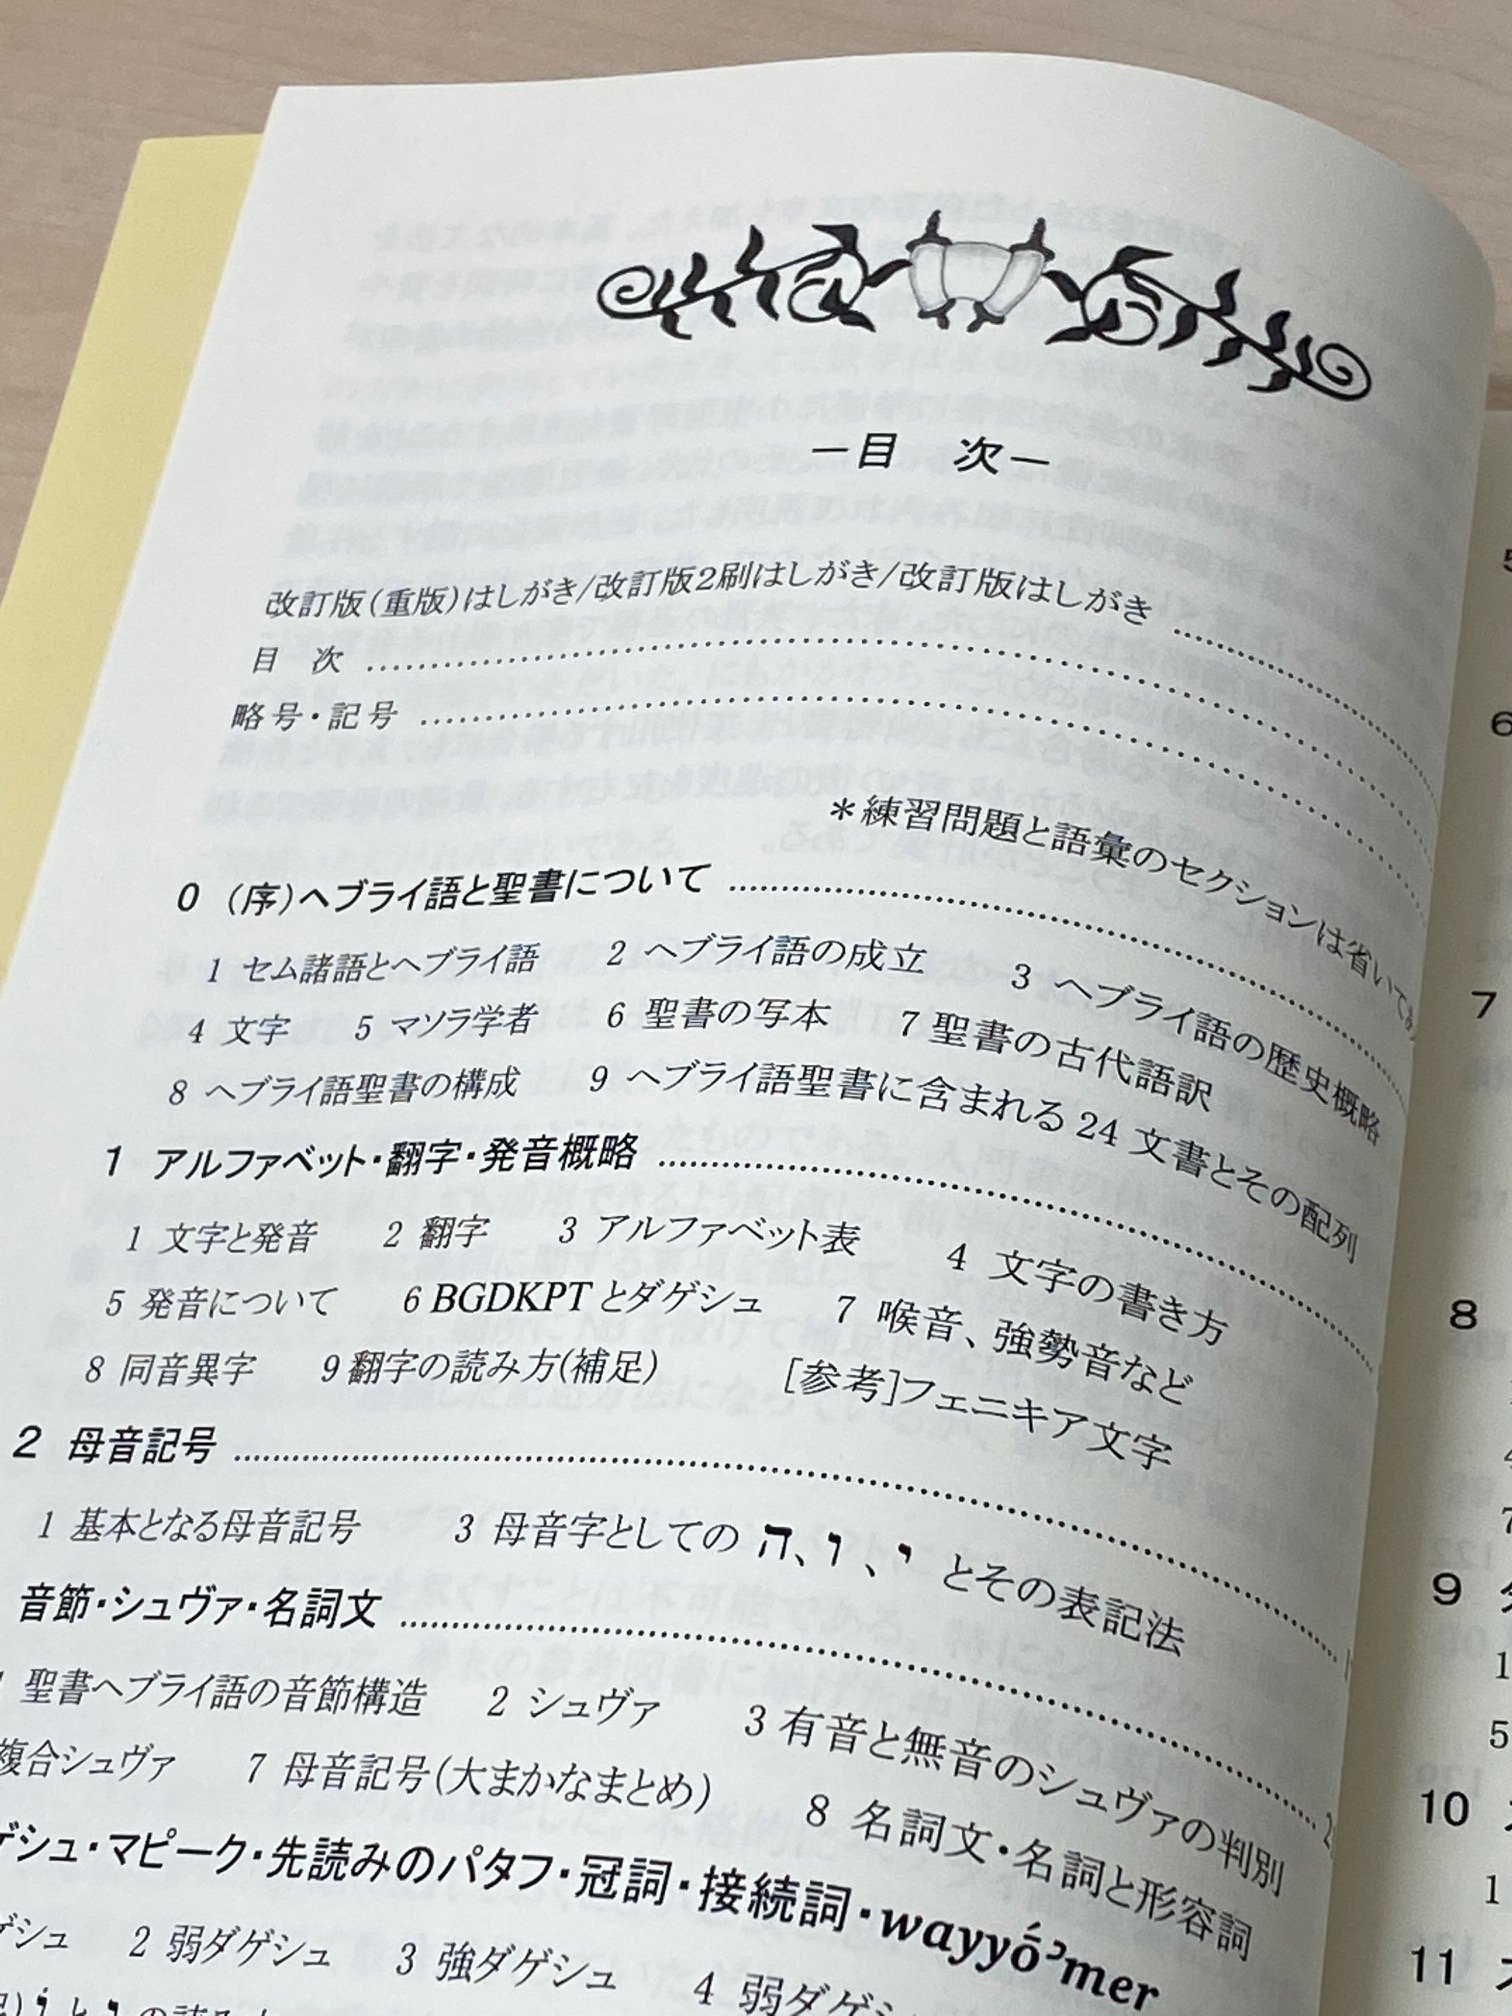 －目　次－
改訂版(重版)はしがき/改訂版2刷はしがき/改訂版はしがき
目　次
略号・記号
＊練習問題と語彙のセクションは省いてあ
0 (序)ヘブライ語と聖書について
1 セム諸語とヘブライ語　2 ヘブライ語の成立　3 ヘブライ語の歴史概略
4 文字　5 マソラ学者　6 聖書の写本　7 聖書の古代語訳
8 ヘブライ語聖書の構成　9 ヘブライ語聖書に含まれる 24 文書とその配列
1 アルファベット・翻字・発音概略
1 文字と発音　2 翻字　3 アルファベット表　4 文字の書き方
5 発音について　6 BGDKPT とダゲシュ　7 喉音、強勢音など
8 同音異字　9 翻字の読み方(補足)　[参考]フェニキア文字
2 母音記号
1 基本となる母音記号　3 母音字としての ה、ו、י とその表記法
音節・シュヴァ・名詞文
1 聖書ヘブライ語の音節構造　2 シュヴァ　3 有音と無音のシュヴァの判別
複合シュヴァ　7 母音記号(大まかなまとめ)　8 名詞文・名詞と形容詞
ゲシュ・マピーク・先読みのパタフ・冠詞・接続詞・wayyṓʾmer
ゲシュ　2 弱ダゲシュ　3 強ダゲシュ　4 弱ダゲシ
6
7
8
9
10
11